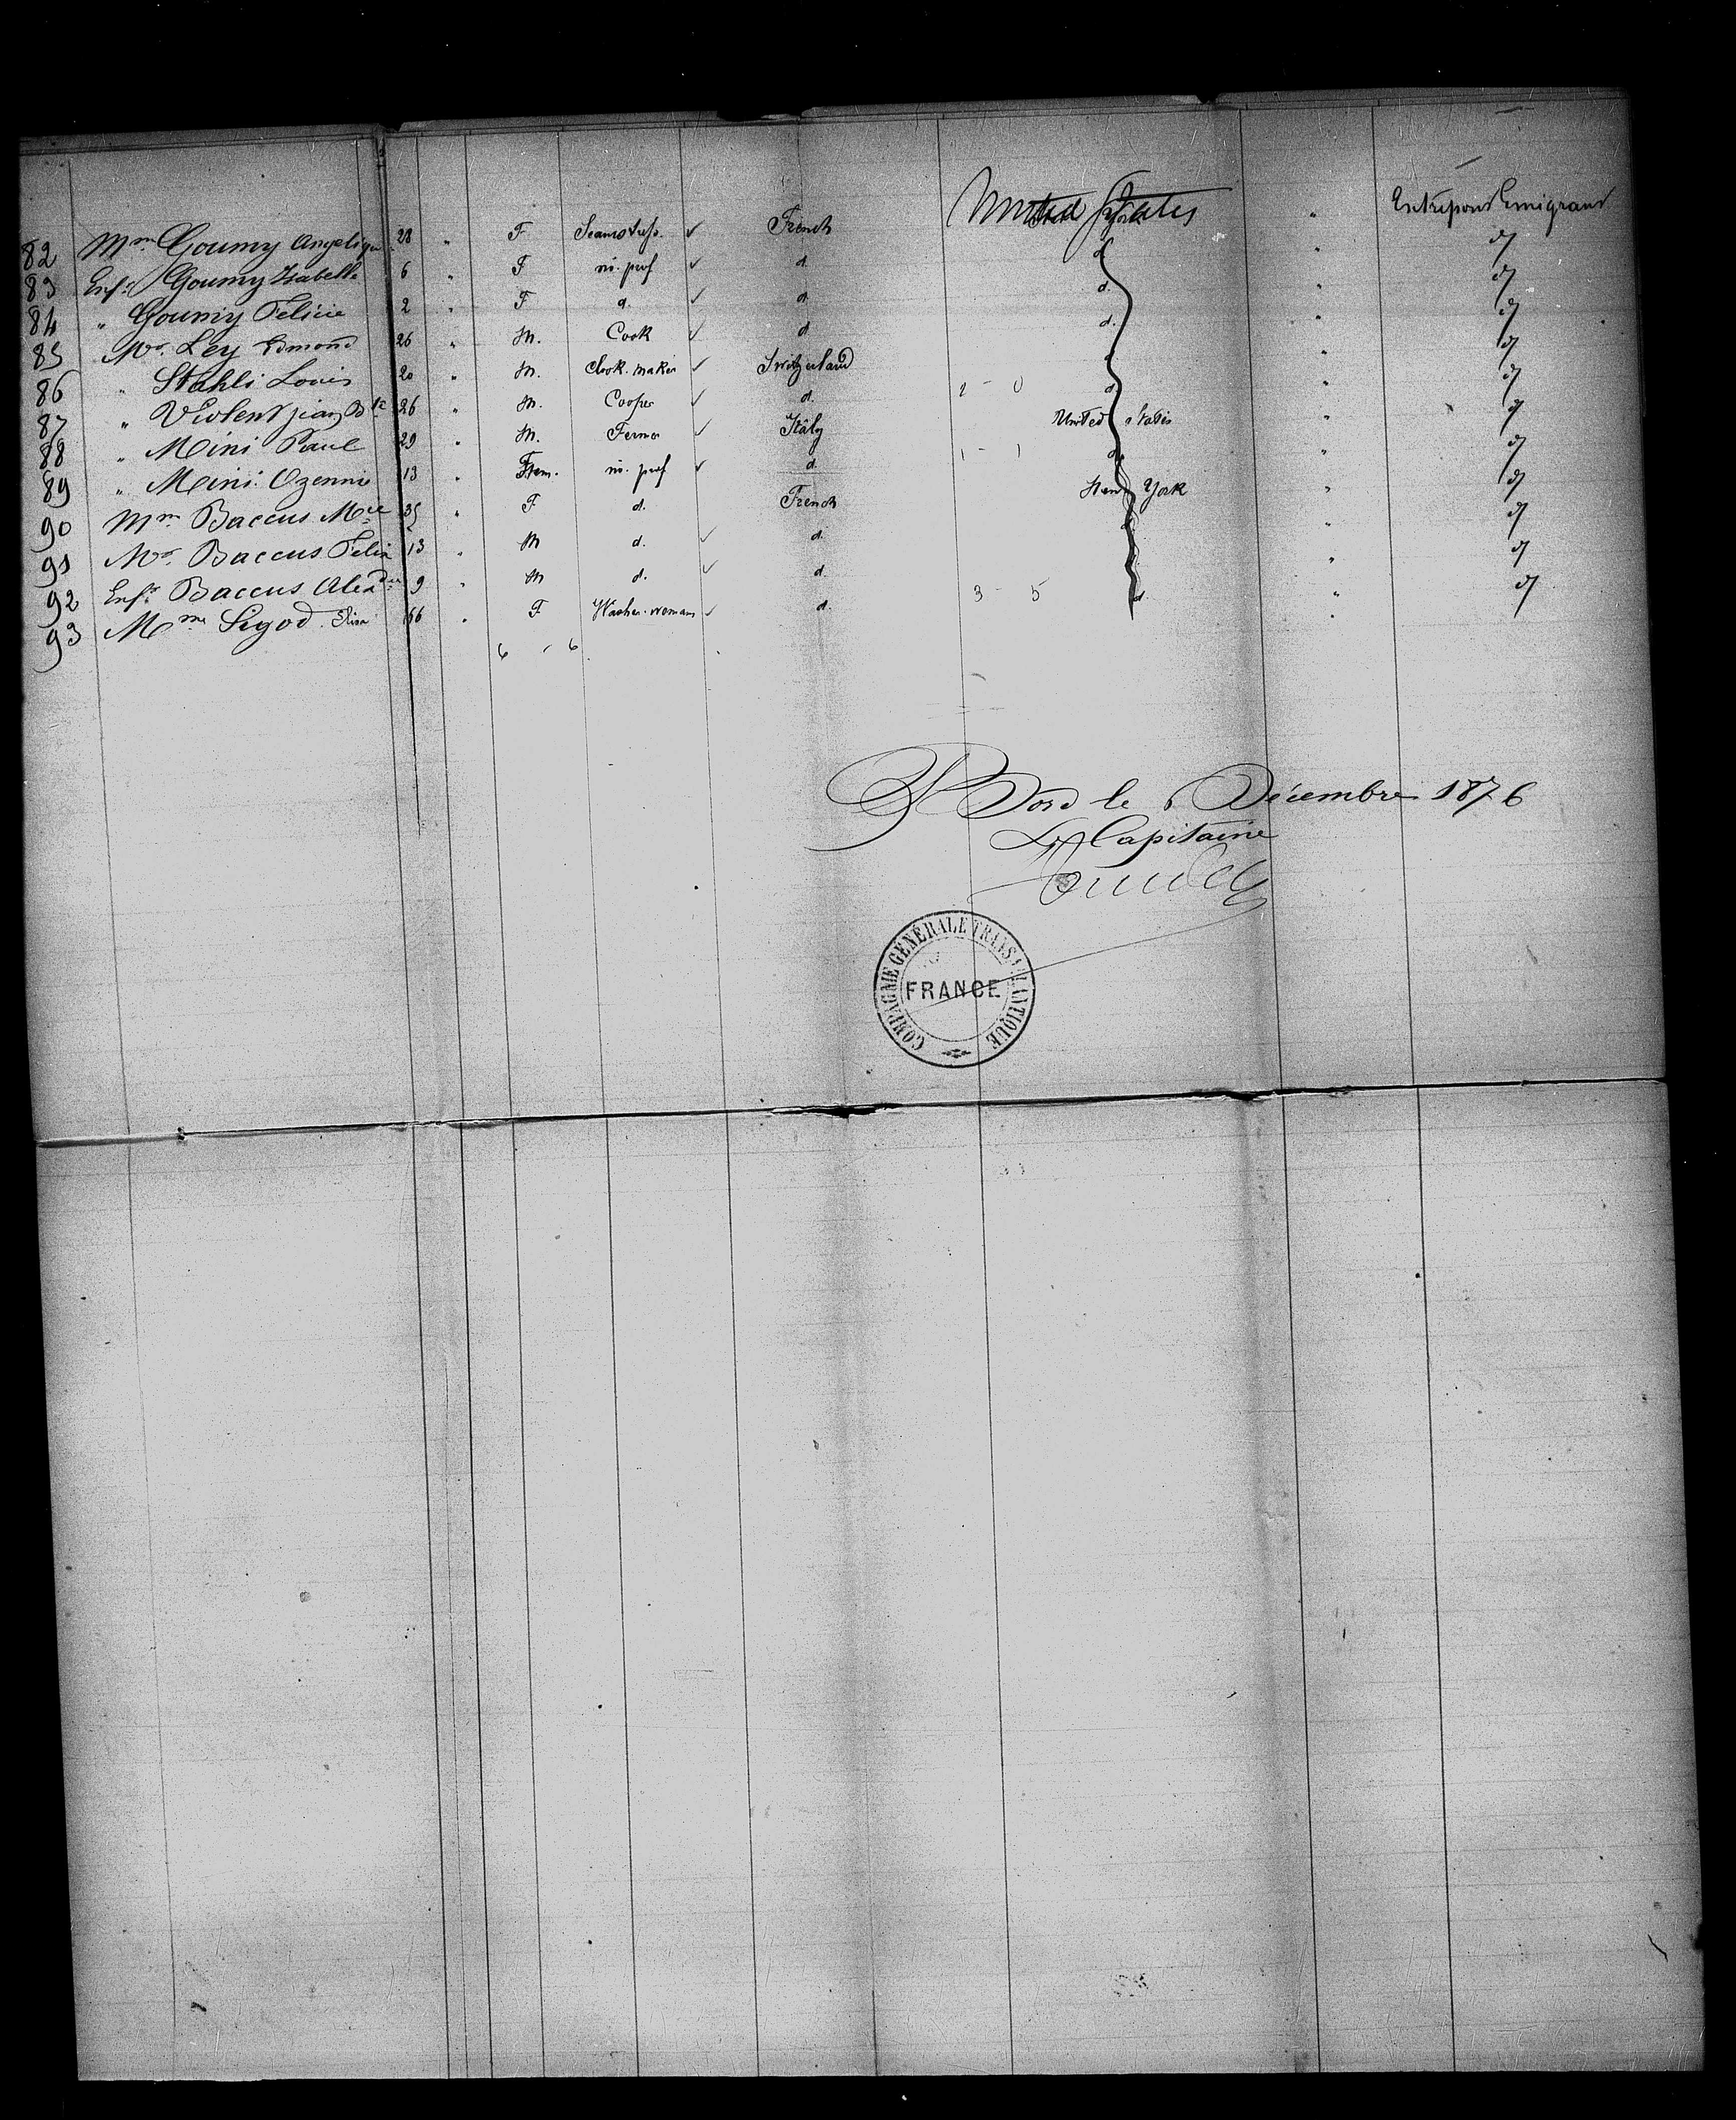 82 Mme Goumy Angelique 28 " F Seamstress. ✓ French United States " Entrepont Emigrant
83 Enft Goumy Isabelle 6 " F no. prof ✓ d. d. " d/
84 " Goumy Felicie 2 " F d. ✓ d. d. " d/
85 Mr. Ley Edmond 26 " M. Cook ✓ d. d. " d/
86 " Stahli Louis 20 " M. Clook. maker ✓ Switzerland d. " d/
87 " Violent jean Bte 26 " M. Cooper ✓ d. 2 - 0 d. " d/
88 " Mini Paul 29 " M. Fermer ✓ Italy United States " d/
89 " Mini 13 " Fem. no. prof ✓ d. 1 - 1 d. " d/
90 Mme Baccus Mie 35 " F d. French New York " d/
91 Mr. Baccus Felix 13 " M d. ✓ d. d. " d/
92 Enft Baccus 9 " M d. ✓ d. " d/
93 Mme Sigod 66 " F Washer. woman ✓ d. 3 - 5 d. " d/
6 - 6
Bord le 6 Décembre 1876
Le Capitaine
COMPAGNIE GÉNÉRALE TRANSATLANTIQUE
FRANCE